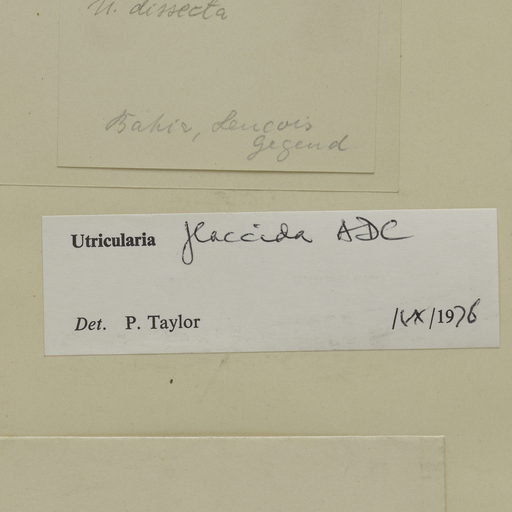 U. dissecta
Bahia, Lençois
Gegend
Utricularia flaccida ADC
Det. P. Taylor /IX/1976